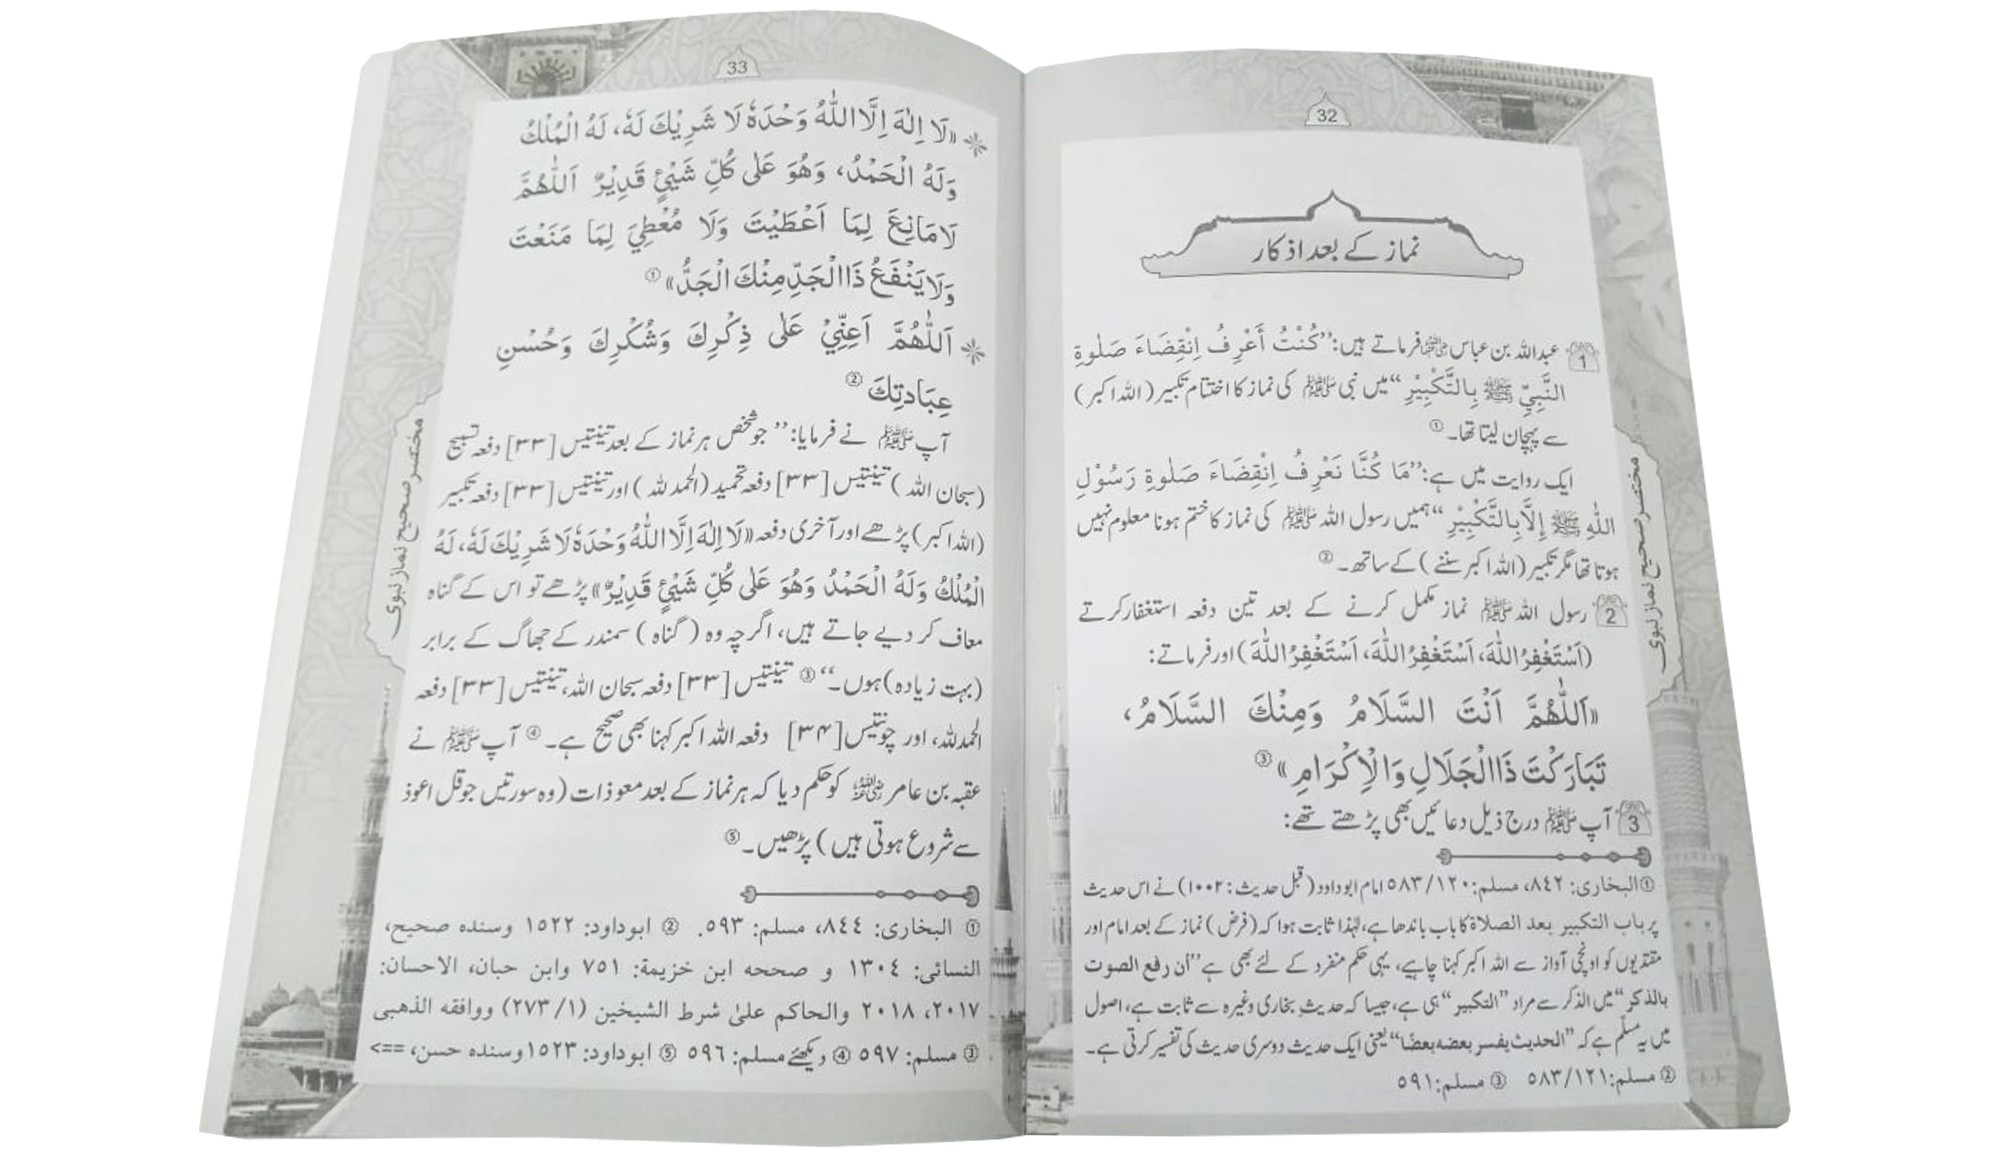 32
نماز کے بعد اذکار
1 عبداللہ بن عباس رضی اللہ عنہما فرماتے ہیں: ”كُنْتُ أَعْرِفُ اِنْقِضَاءَ صَلٰوةِ
النَّبِيِّ ﷺ بِالتَّكْبِيْرِ“ میں نبی ﷺ کی نماز کا اختتام تکبیر (اللہ اکبر)
سے پہچان لیتا تھا۔ ①
ایک روایت میں ہے: ”مَا كُنَّا نَعْرِفُ اِنْقِضَاءَ صَلٰوةِ رَسُوْلِ
اللّٰهِ ﷺ إِلَّا بِالتَّكْبِيْرِ“ ہمیں رسول اللہ ﷺ کی نماز کا ختم ہونا معلوم نہیں
ہوتا تھا مگر تکبیر (اللہ اکبر سننے) کے ساتھ۔ ②
2 رسول اللہ ﷺ نماز مکمل کرنے کے بعد تین دفعہ استغفار کرتے
(اَسْتَغْفِرُ اللّٰهَ، اَسْتَغْفِرُ اللّٰهَ، اَسْتَغْفِرُ اللّٰهَ) اور فرماتے:
«اَللّٰهُمَّ اَنْتَ السَّلَامُ وَمِنْكَ السَّلَامُ،
تَبَارَكْتَ ذَا الْجَلَالِ وَالْاِكْرَامِ» ③
3 آپ ﷺ درج ذیل دعائیں بھی پڑھتے تھے:
① البخاری: ٨٤٢، مسلم: ٥٨٣/١٢٠ امام ابوداود (قبل حدیث: ١٠٠٢) نے اس حدیث
پر باب التکبیر بعد الصلاة کا باب باندھا ہے، لہٰذا ثابت ہوا کہ (فرض) نماز کے بعد امام اور
مقتدیوں کو اونچی آواز سے اللہ اکبر کہنا چاہیے، یہی حکم منفرد کے لئے بھی ہے ”أن رفع الصوت
بالذكر“ میں الذکر سے مراد ”التکبیر“ ہی ہے، جیسا کہ حدیث بخاری وغیرہ سے ثابت ہے، اصول
میں یہ مسلّم ہے کہ ”الحدیث یفسر بعضه بعضًا“ یعنی ایک حدیث دوسری حدیث کی تفسیر کرتی ہے۔
② مسلم: ٥٨٣/١٢١ ③ مسلم: ٥٩١
مختصر صحیح نماز نبوی
33
«لَا اِلٰهَ اِلَّا اللّٰهُ وَحْدَهٗ لَا شَرِيْكَ لَهٗ، لَهُ الْمُلْكُ
وَلَهُ الْحَمْدُ، وَهُوَ عَلٰى كُلِّ شَيْئٍ قَدِيْرٌ اَللّٰهُمَّ
لَا مَانِعَ لِمَا اَعْطَيْتَ وَلَا مُعْطِيَ لِمَا مَنَعْتَ
وَلَا يَنْفَعُ ذَا الْجَدِّ مِنْكَ الْجَدُّ» ①
اَللّٰهُمَّ اَعِنِّيْ عَلٰى ذِكْرِكَ وَشُكْرِكَ وَحُسْنِ
عِبَادَتِكَ ②
آپ ﷺ نے فرمایا: ”جو شخص ہر نماز کے بعد تینتیس [۳۳] دفعہ تسبیح
(سبحان اللہ) تینتیس [۳۳] دفعہ تحمید (الحمد للہ) اور تینتیس [۳۳] دفعہ تکبیر
(اللہ اکبر) پڑھے اور آخری دفعہ «لَا اِلٰهَ اِلَّا اللّٰهُ وَحْدَهٗ لَا شَرِيْكَ لَهٗ، لَهُ
الْمُلْكُ وَلَهُ الْحَمْدُ وَهُوَ عَلٰى كُلِّ شَيْئٍ قَدِيْرٌ» پڑھے تو اس کے گناہ
معاف کر دیے جاتے ہیں، اگرچہ وہ (گناہ) سمندر کے جھاگ کے برابر
(بہت زیادہ) ہوں۔“ ③ تینتیس [۳۳] دفعہ سبحان اللہ، تینتیس [۳۳] دفعہ
الحمد للہ، اور چونتیس [۳۴] دفعہ اللہ اکبر کہنا بھی صحیح ہے۔ ④ آپ ﷺ نے
عقبہ بن عامر رضی اللہ عنہ کو حکم دیا کہ ہر نماز کے بعد معوذات (وہ سورتیں جو قل اعوذ
سے شروع ہوتی ہیں) پڑھیں۔ ⑤
① البخاری: ٨٤٤، مسلم: ٥٩٣. ② ابوداود: ١٥٢٢ وسنده صحیح،
النسائی: ١٣٠٤ و صححه ابن خزیمة: ٧٥١ وابن حبان، الاحسان:
٢٠١٧، ٢٠١٨ والحاکم علیٰ شرط الشیخین (٢٧٣/١) ووافقه الذهبی
③ مسلم: ٥٩٧ ④ دیکھئے مسلم: ٥٩٦ ⑤ ابوداود: ١٥٢٣ وسنده حسن، ==>
مختصر صحیح نماز نبوی